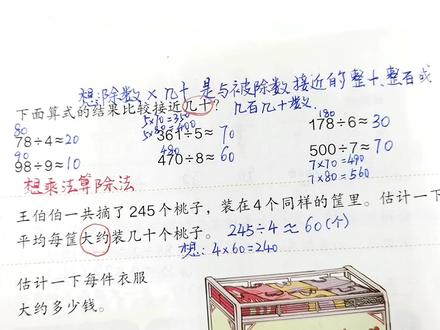 想:除数×几十是与被除数接近的整十、整百或
几百几十数.
下面算式的结果比较接近几十?
80
5×70=350
180
78÷4≈20
5×80=400
361÷5≈70
178÷6≈30
90
480
98÷9≈10
470÷8≈60
500÷7≈70
7×70=490
7×80=560
想乘法算除法
王伯伯一共摘了245个桃子,装在4个同样的筐里。估计一下
平均每筐大约装几十个桃子。 245÷4≈60(个)
想:4×60=240
估计一下每件衣服
大约多少钱。